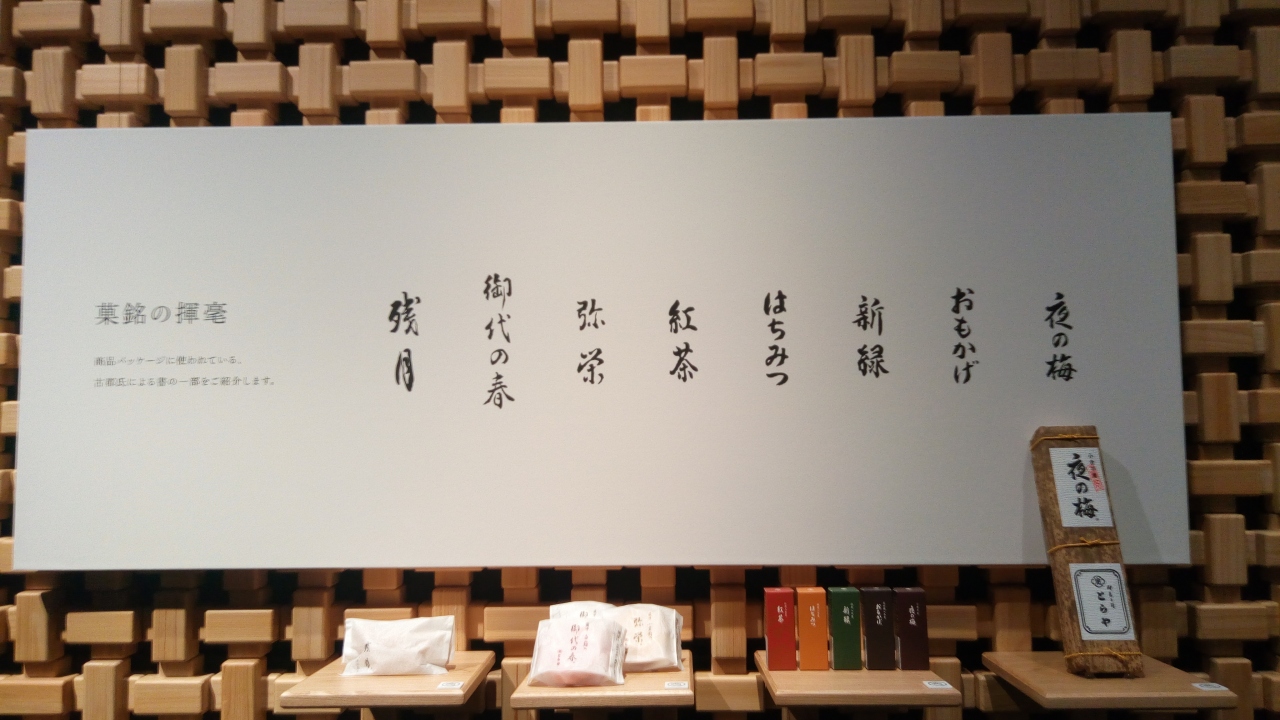 菓銘の揮毫
商品パッケージに使われている、
古郡氏による書の一部をご紹介します。
夜の梅
おもかげ
新緑
はちみつ
紅茶
弥栄
御代の春
残月
夜の梅
とらや
夜の梅
おもかげ
新緑
はちみつ
紅茶
弥栄
御代の春